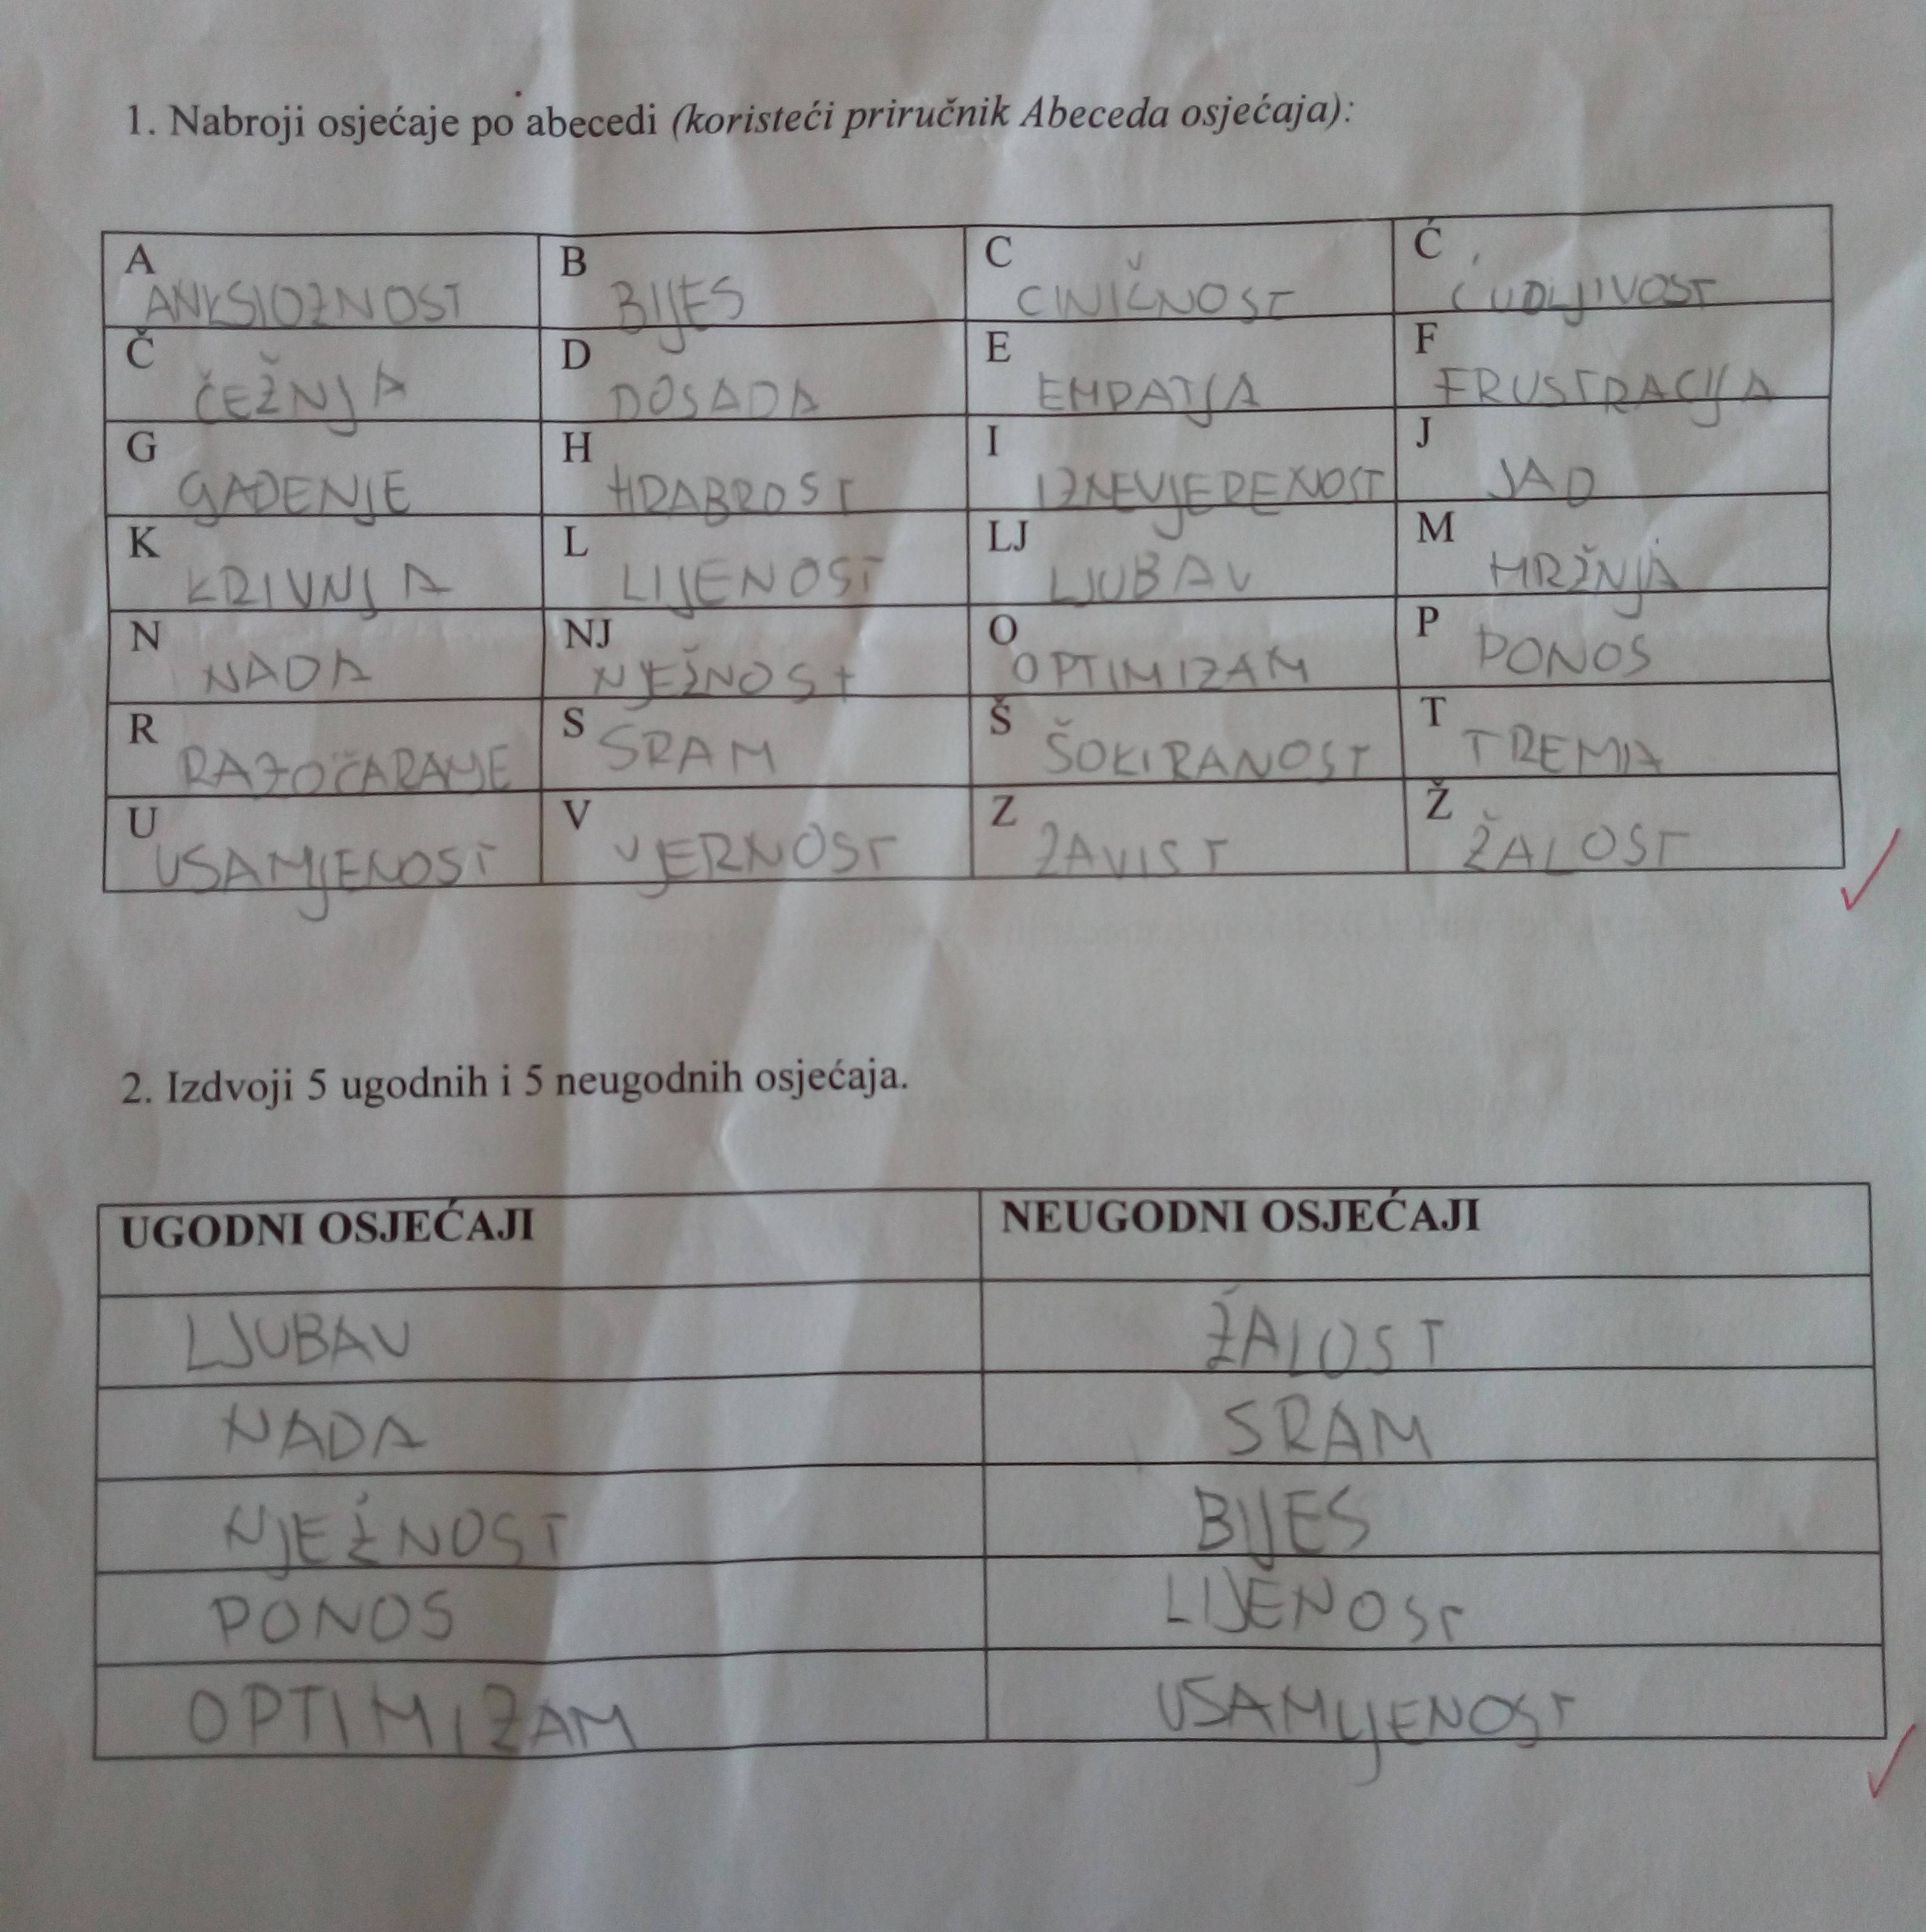 1. Nabroji osjećaje po abecedi (koristeći priručnik Abeceda osjećaja):
A B C Ć
ANKSIOZNOST BIJES CINIČNOST ĆUDLJIVOST
Č D E F
ČEŽNJA DOSADA EMPATJA FRUSTRACIJA
G H I J
GAĐENJE HRABROST IZNEVJERENOST JAD
K L LJ M
KRIVNJA LIJENOST LJUBAV MRŽNJA
N NJ O P
NADA NJEŽNOST OPTIMIZAM PONOS
R S Š T
RAZOČARANJE SRAM ŠOKIRANOST TREMA
U V Z Ž
USAMJENOST VJERNOST ZAVIST ŽALOST
2. Izdvoji 5 ugodnih i 5 neugodnih osjećaja.
UGODNI OSJEĆAJI NEUGODNI OSJEĆAJI
LJUBAV ŽALOST
NADA SRAM
NJEŽNOST BIJES
PONOS LIJENOST
OPTIMIZAM USAMLJENOST